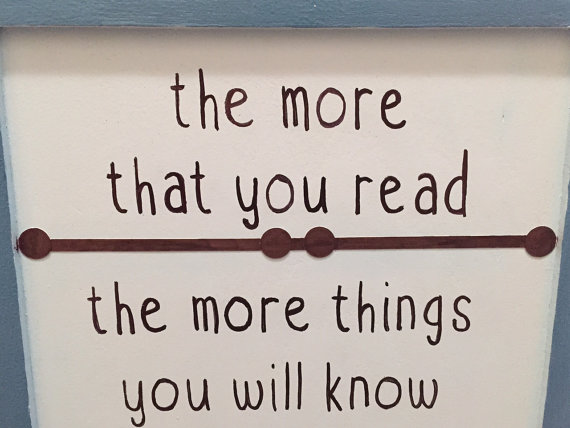 the more
that you read
the more things
you will know